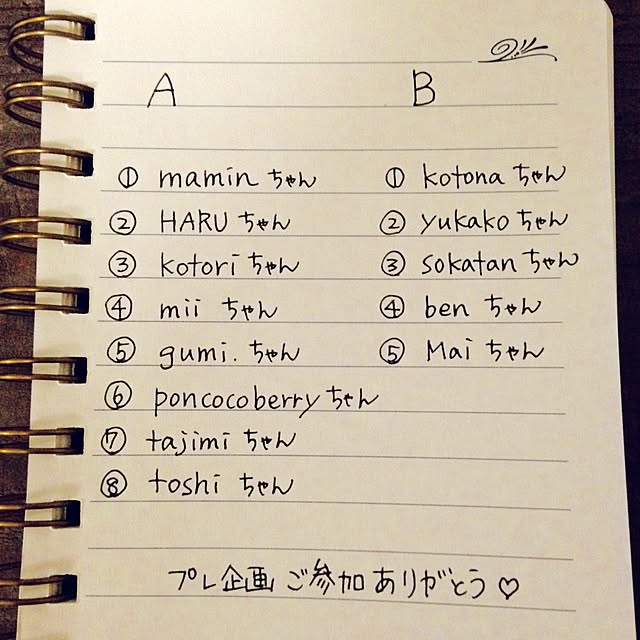 A B
① mamin ちゃん ① kotona ちゃん
② HARU ちゃん ② yukako ちゃん
③ kotori ちゃん ③ sokatan ちゃん
④ mii ちゃん ④ ben ちゃん
⑤ gumi. ちゃん ⑤ Mai ちゃん
⑥ poncocoberry ちゃん
⑦ tajimi ちゃん
⑧ toshi ちゃん
プレ企画 ご参加 ありがとう ♡